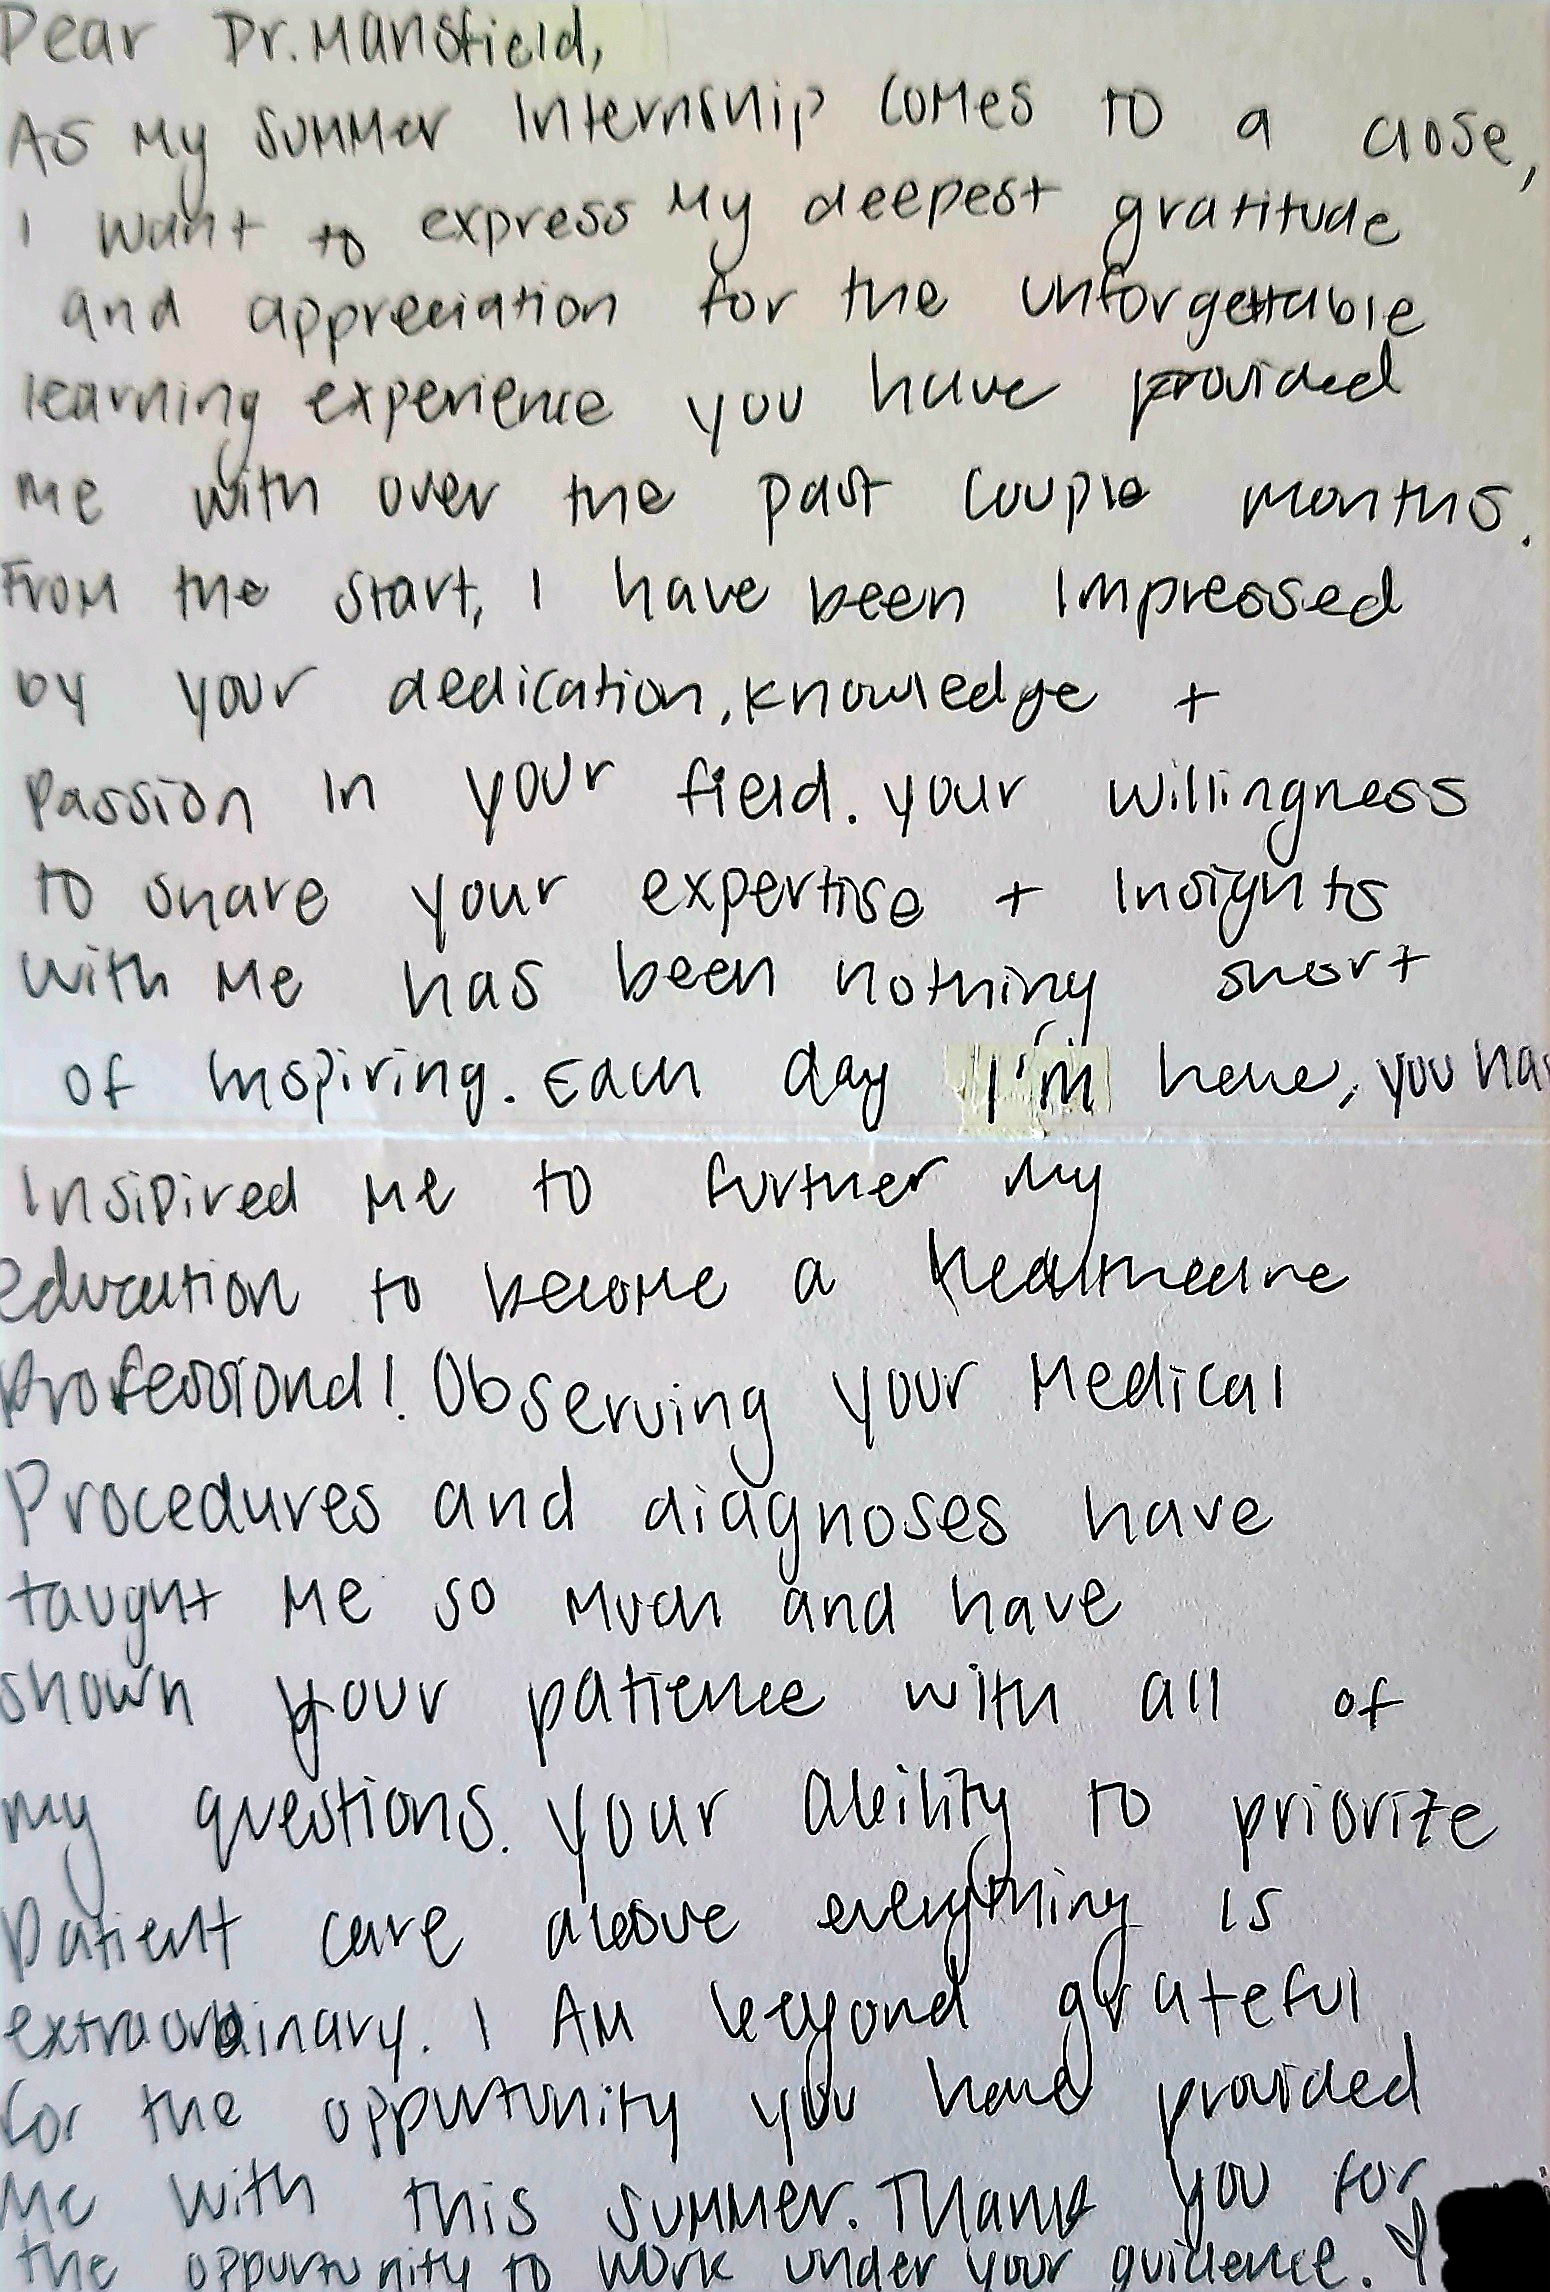 Dear Dr. Mansfield,
As my summer internship comes to a close,
I want to express my deepest gratitude
and appreciation for the unforgettable
learning experience you have provided
me with over the past couple months.
From the start, I have been impressed
by your dedication, knowledge +
passion in your field. Your willingness
to share your expertise + insights
with me has been nothing short
of inspiring. Each day I'm here, you ha
insipired me to further my
education to become a healthcare
professional! Observing your medical
Procedures and diagnoses have
taught me so much and have
shown your patience with all of
my questions. Your ability to priorize
patient care above everything is
extraordinary. I am beyond grateful
for the opportunity you have provided
me with this summer. Thank you for
the opportunity to work under your guidence.